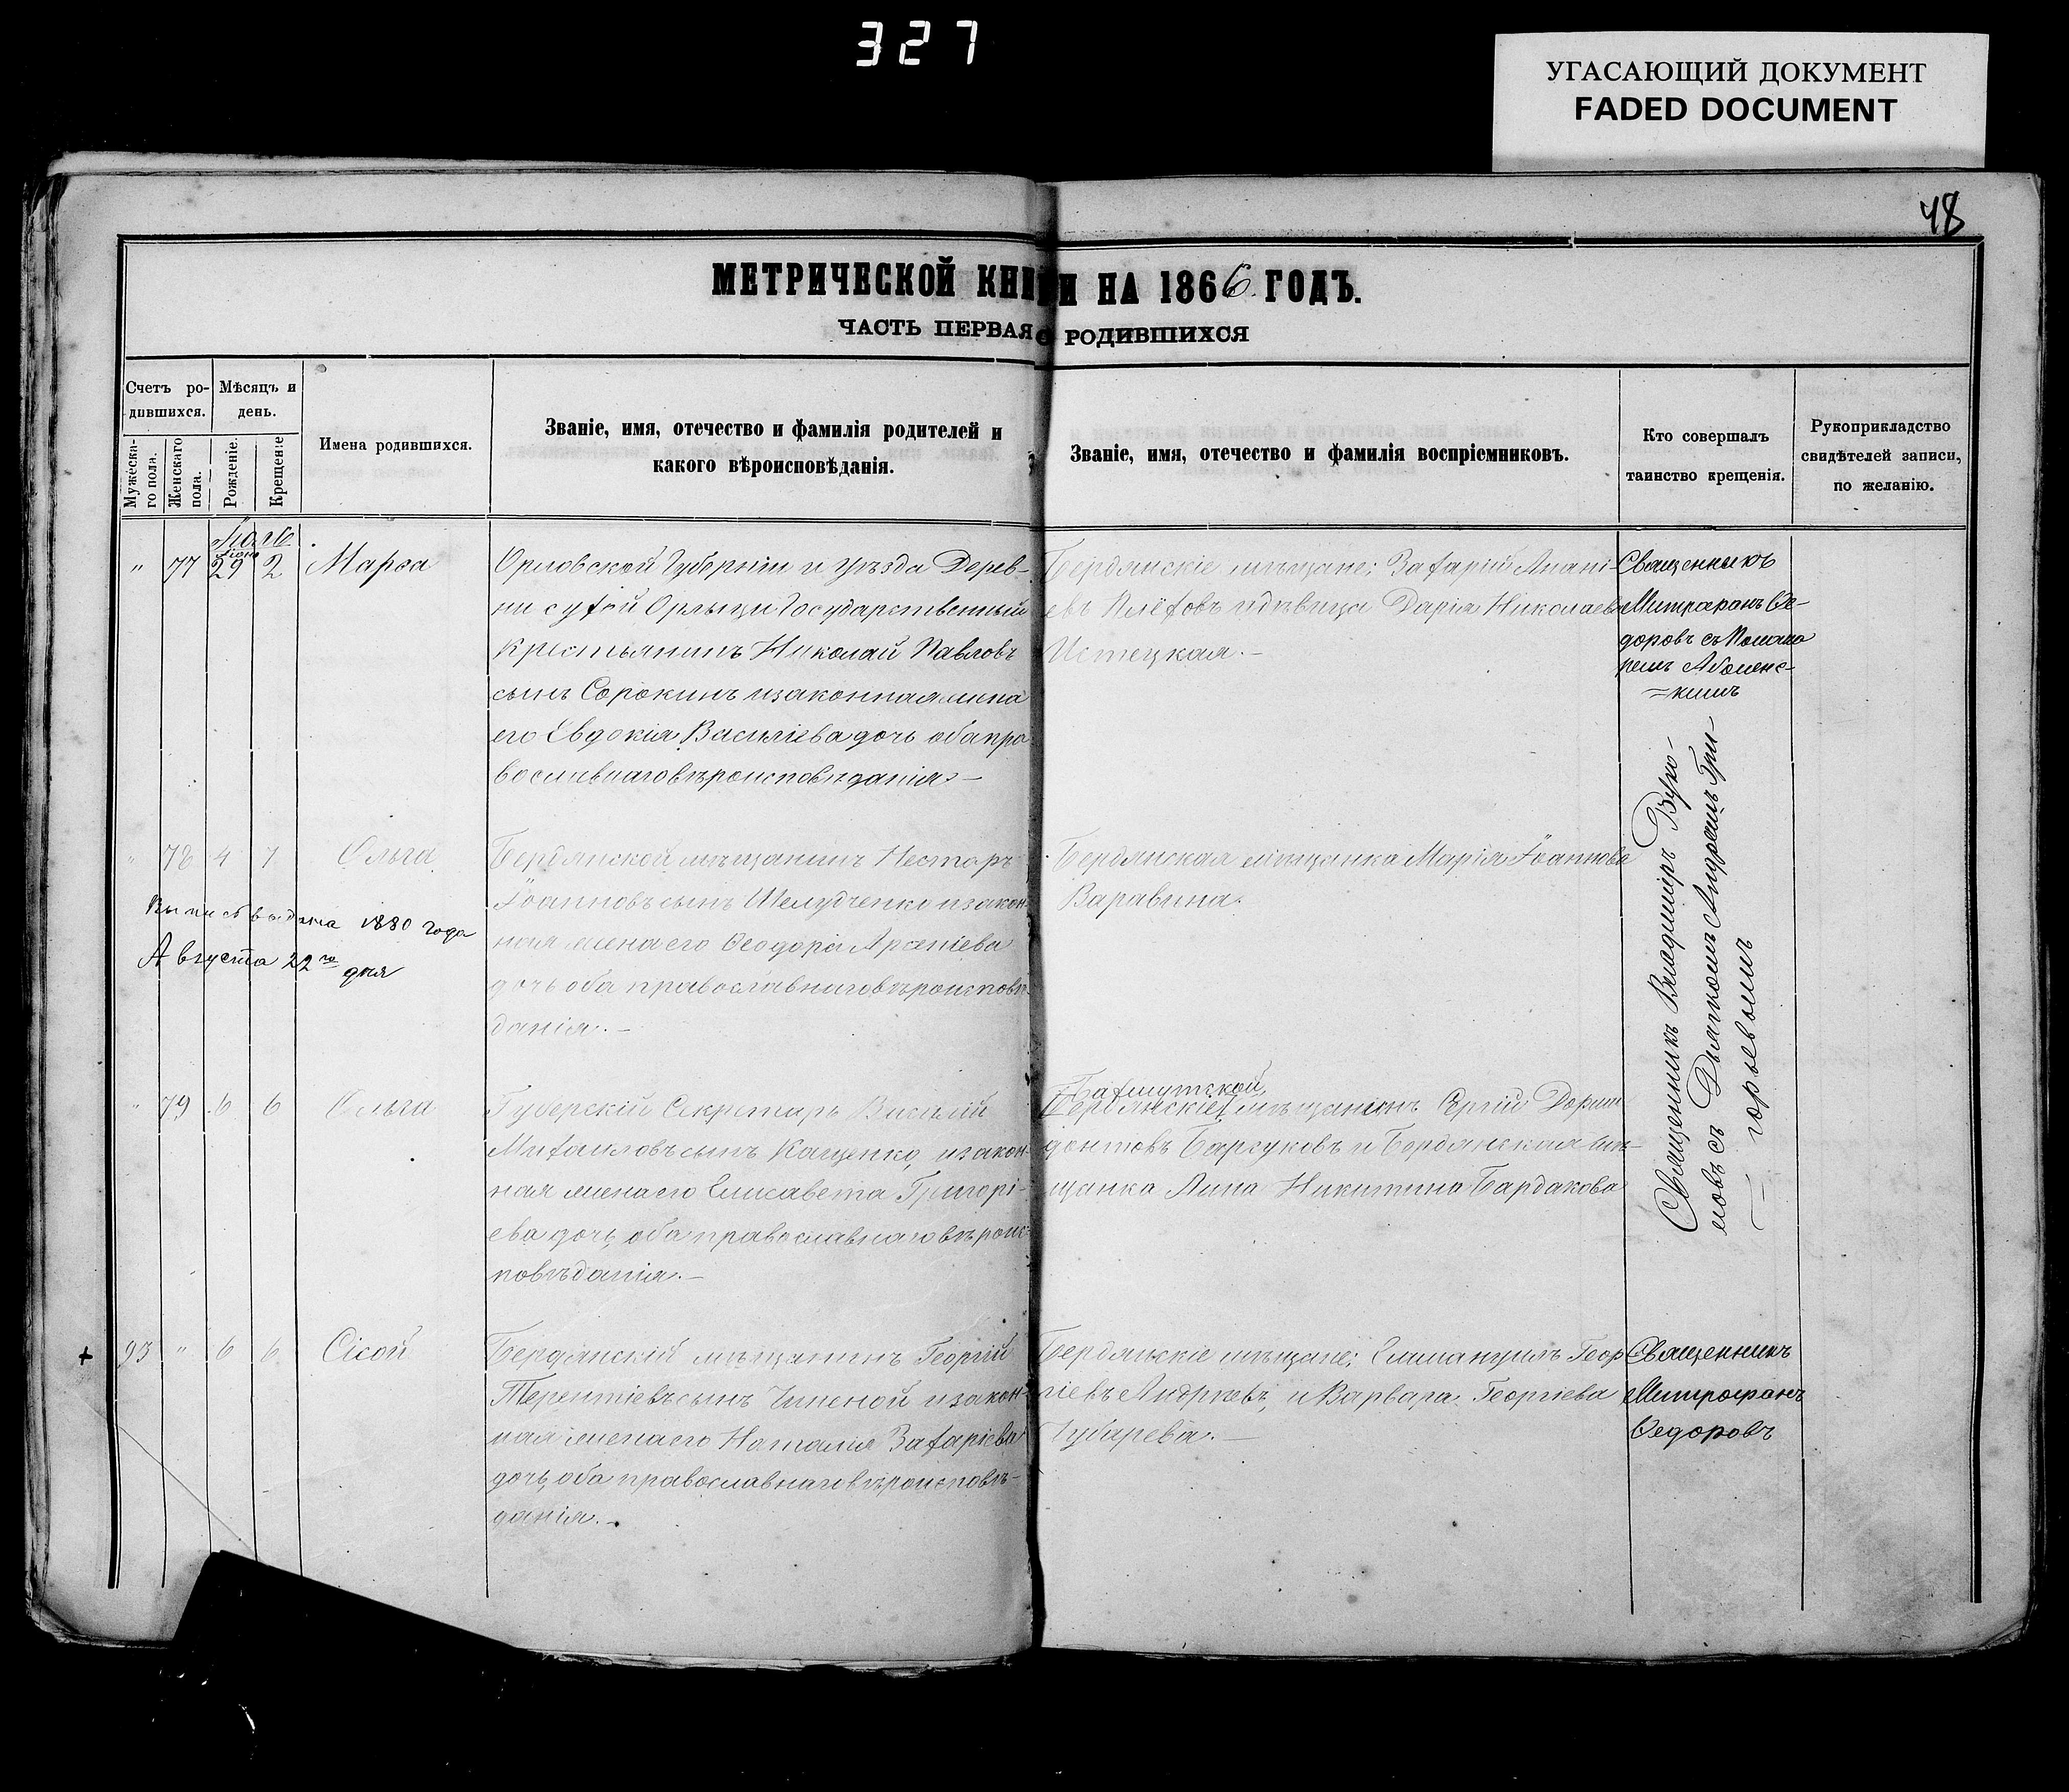 327
УГАСАЮЩИЙ ДОКУМЕНТ
FADED DOCUMENT
48
МЕТРИЧЕСКОЙ КНИГИ НА 1866 ГОДЪ.
ЧАСТЬ ПЕРВАЯ О РОДИВШИХСЯ
Счетъ ро-
дившихся.
Мужеска-
го пола.
Женскаго
пола.
Мѣсяцъ и
день.
Рожденіе.
Крещеніе
Имена родившихся.
Званіе, имя, отечество и фамилія родителей и
какого вѣроисповѣданія.
Званіе, имя, отечество и фамилія воспріемниковъ.
Кто совершалъ
таинство крещенія.
Рукоприкладство
свидѣтелей записи,
по желанію.
" 77 29 2 Марѳа
Орловской Губерніи и уѣзда Дерев-
ни сухой Орлыци Государственный
Крестьянинъ Николай Павловъ
сынъ Сорокинъ и законная жена
его Евдокія Василіева дочь оба пра
вославнаго вѣроисповѣданія. –
Бердянскіе мѣщане: Захарій Анані-
евъ Плёховъ и дѣвица Дарія Николаева
Истецкая. –
Священникъ
Митрофанъ Ѳе-
доровъ съ Понама
ремъ
=кимъ
" 78 4 7 Ольга
Бердянской мѣщанинъ Несторъ
Іоанновъ сынъ Шелудченко и закон-
ная жена его Ѳеодора Арсеніева
дочь оба православнаго вѣроисповѣ-
данія. –
Бердянская мѣщанка Марія Іоаннова
Варавина.
Выпись выдана 1880 года
Августа 22го дня
Священникъ Владиміръ Вуко-
ловъ съ Дьячкомъ Андреемъ Гри-
– горьевымъ
" 79 6 6 Ольга
Губерскій Секретарь Василій
Михаиловъ сынъ Кащенко, и закон-
ная жена его Елисавета Григорі-
ева дочь, оба православнаго вѣроис-
повѣданія. –
Бахмутской
Бердянскіе мѣщанинъ Сергій Дорми
донтовъ Барсуковъ и Бердянская мѣ-
щанка Анна Никитина Бардакова
+ 93 " 6 6 Сісой
Бердянскій мѣщанинъ Георгій
Терентіевъ сынъ Чиненой и закон-
ная жена его Наталія Захаріева
дочь, оба православнаго вѣроисповѣ-
данія. –
Бердянскіе мѣщане: Еммануилъ Геор
гіевъ Андреевъ, и Варвара Георгіева
Губарева. –
Священникъ
Митрофанъ
Ѳедоровъ